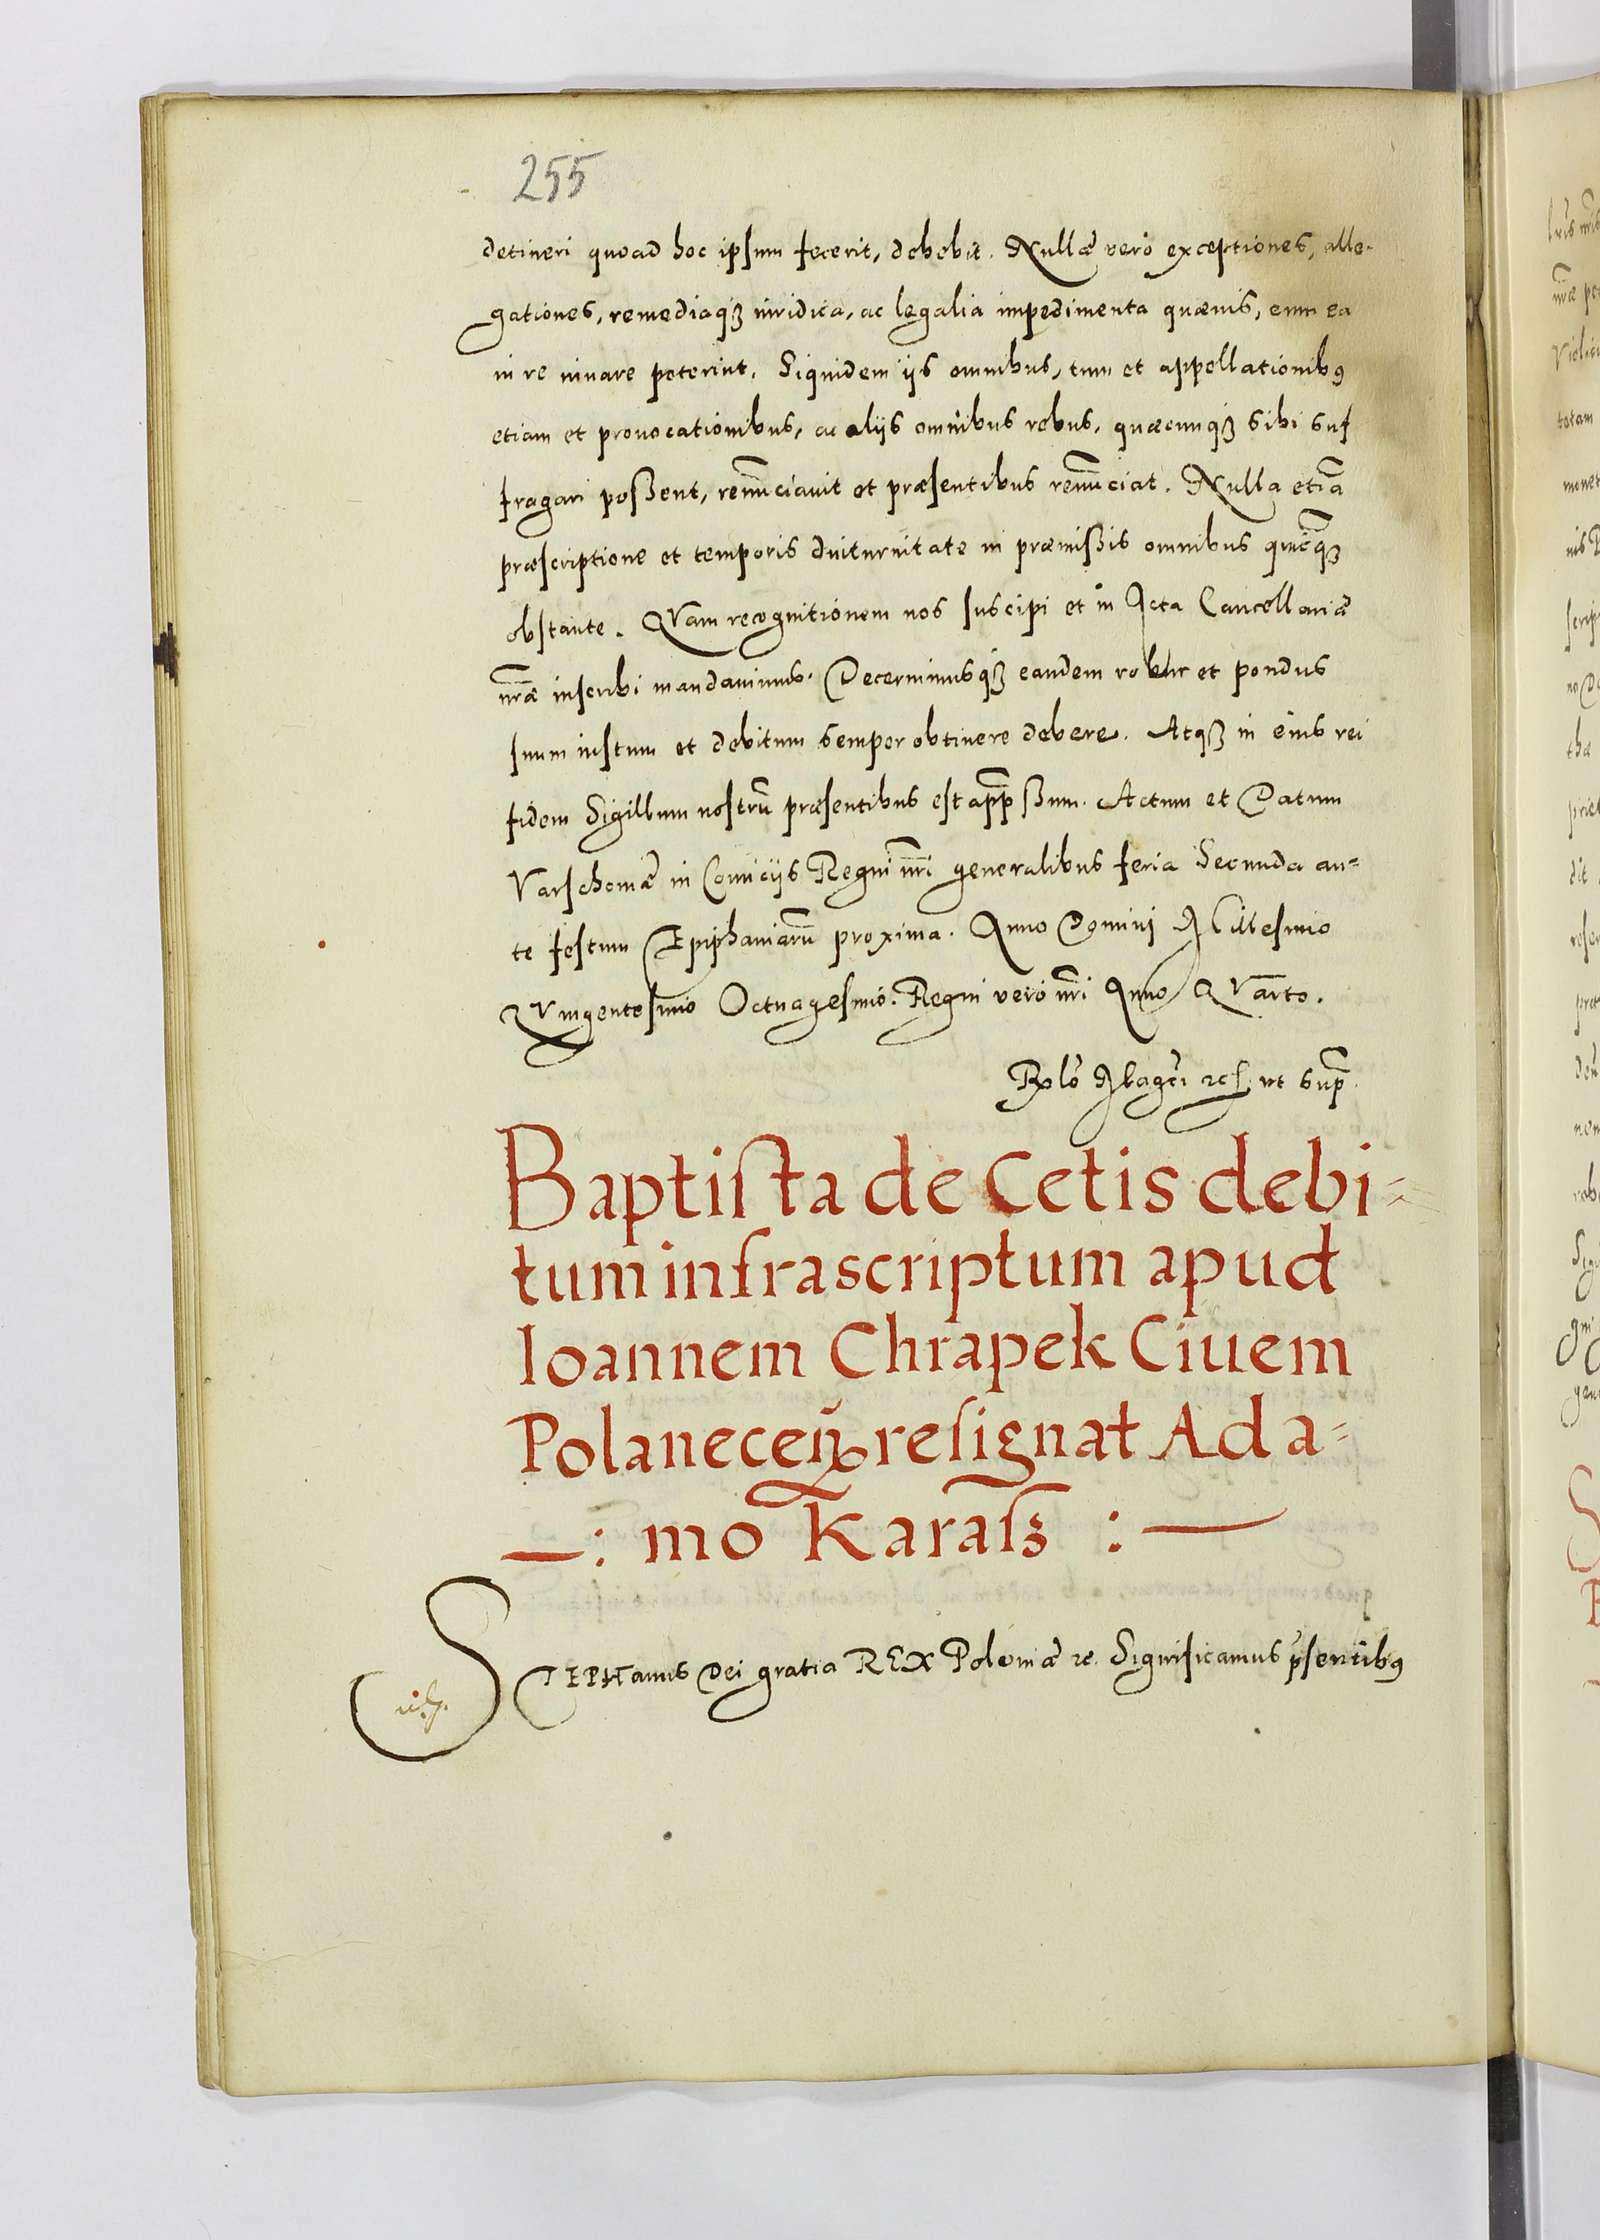 255
detineri quoad hoc ipsum fecerit, debebit. Nullæ vero exceptiones, alle-
gationes, remediaq3 iuridica, ac legalia impedimenta quæuis, eum ea
in re iuuare poterint. Siquidem iis omnibus, tum et appellationib9
etiam et prouocationibus, ac aliis omnibus rebus, quæcunq3 sibi suf
fragari possent, renūciauit et præsentibus renūciat. Nulla etiā
præscriptione et temporis diuturnitate in præmissis omnibus quicq3
obstante. QVam recognitionem nos suscipi et in Acta Cancellariæ
nrāe inscribi mandauimus. Decernimusq3 eandem robur et pondus
suum iustum et debitum semper obtinere debere. Atq3 in eius rei
fidem Sigillum nostrū præsentibus est appssum. Actum et Datum
Varschouiæ in Comiciis Regni nrī generalibus feria Secunda an=
te festum Epiphaniarū proxima. Anno Domini Millesimo
QVingentesimo Octuagesimo. Regni vero nrī Anno QVarto.
Rlo Magci rc ut sup
Baptista de Cetis debi=
tum infrascriptum apud
Ioannem Chrapek Ciuem
Polanecen resignat Ada=
—: mo Karass :—
STEPHanus Dei gratia REX Poloniæ rc. Significamus p̄sentib9